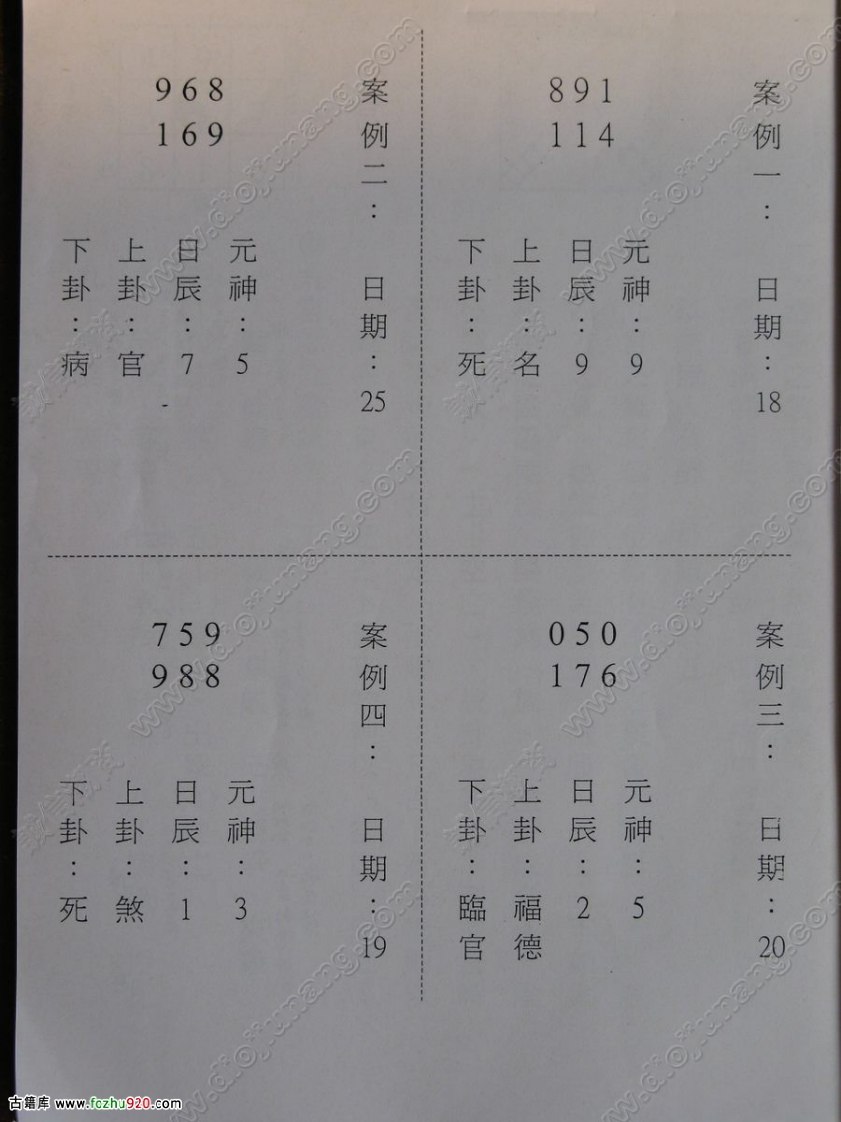 案例一： 日期：18
891
114
元神：9
日辰：9
上卦：名
下卦：死
案例二： 日期：25
968
169
元神：5
日辰：7
上卦：官
下卦：病
案例三： 日期：20
050
176
元神：5
日辰：2
上卦：福德
下卦：臨官
案例四： 日期：19
759
988
元神：3
日辰：1
上卦：煞
下卦：死
古籍库 www.fczhu920.com